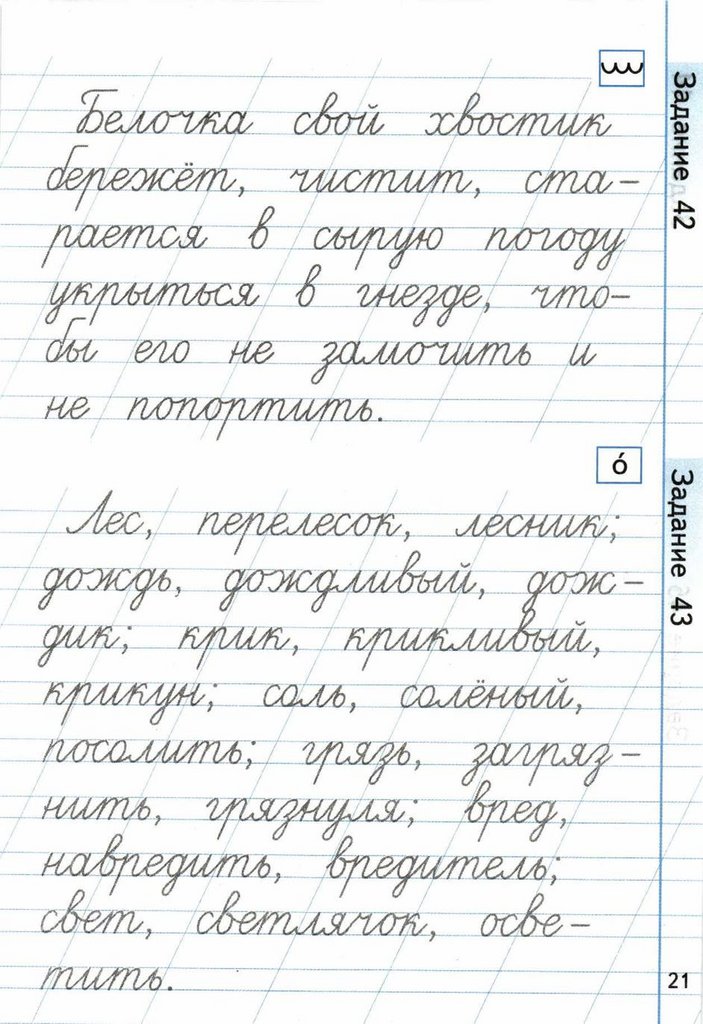 Белочка свой хвостик
бережёт, чистит, ста-
рается в сырую погоду
укрыться в гнезде, что-
бы его не замочить и
не попортить.
Задание 42
ó
Лес, перелесок, лесник;
дождь, дождливый, дож-
дик; крик, крикливый,
крикун; соль, солёный,
посолить; грязь, загряз-
нить, грязнуля; вред,
навредить, вредитель;
свет, светлячок, осве-
тить.
Задание 43
21